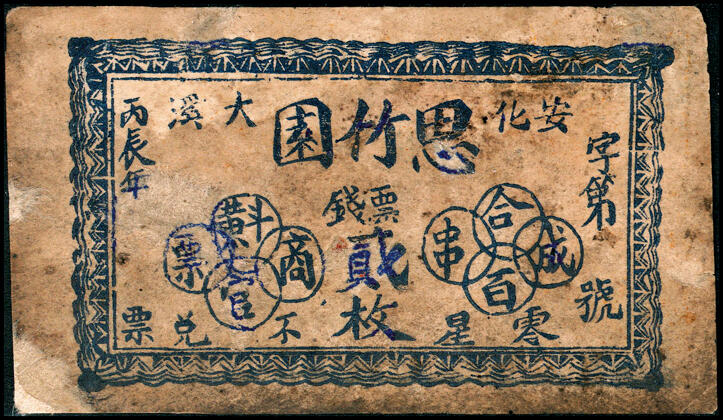 安化
思竹園
大溪
字第號
丙辰年
票錢
貳枚
合成百串
斢商官票
零星不兌票